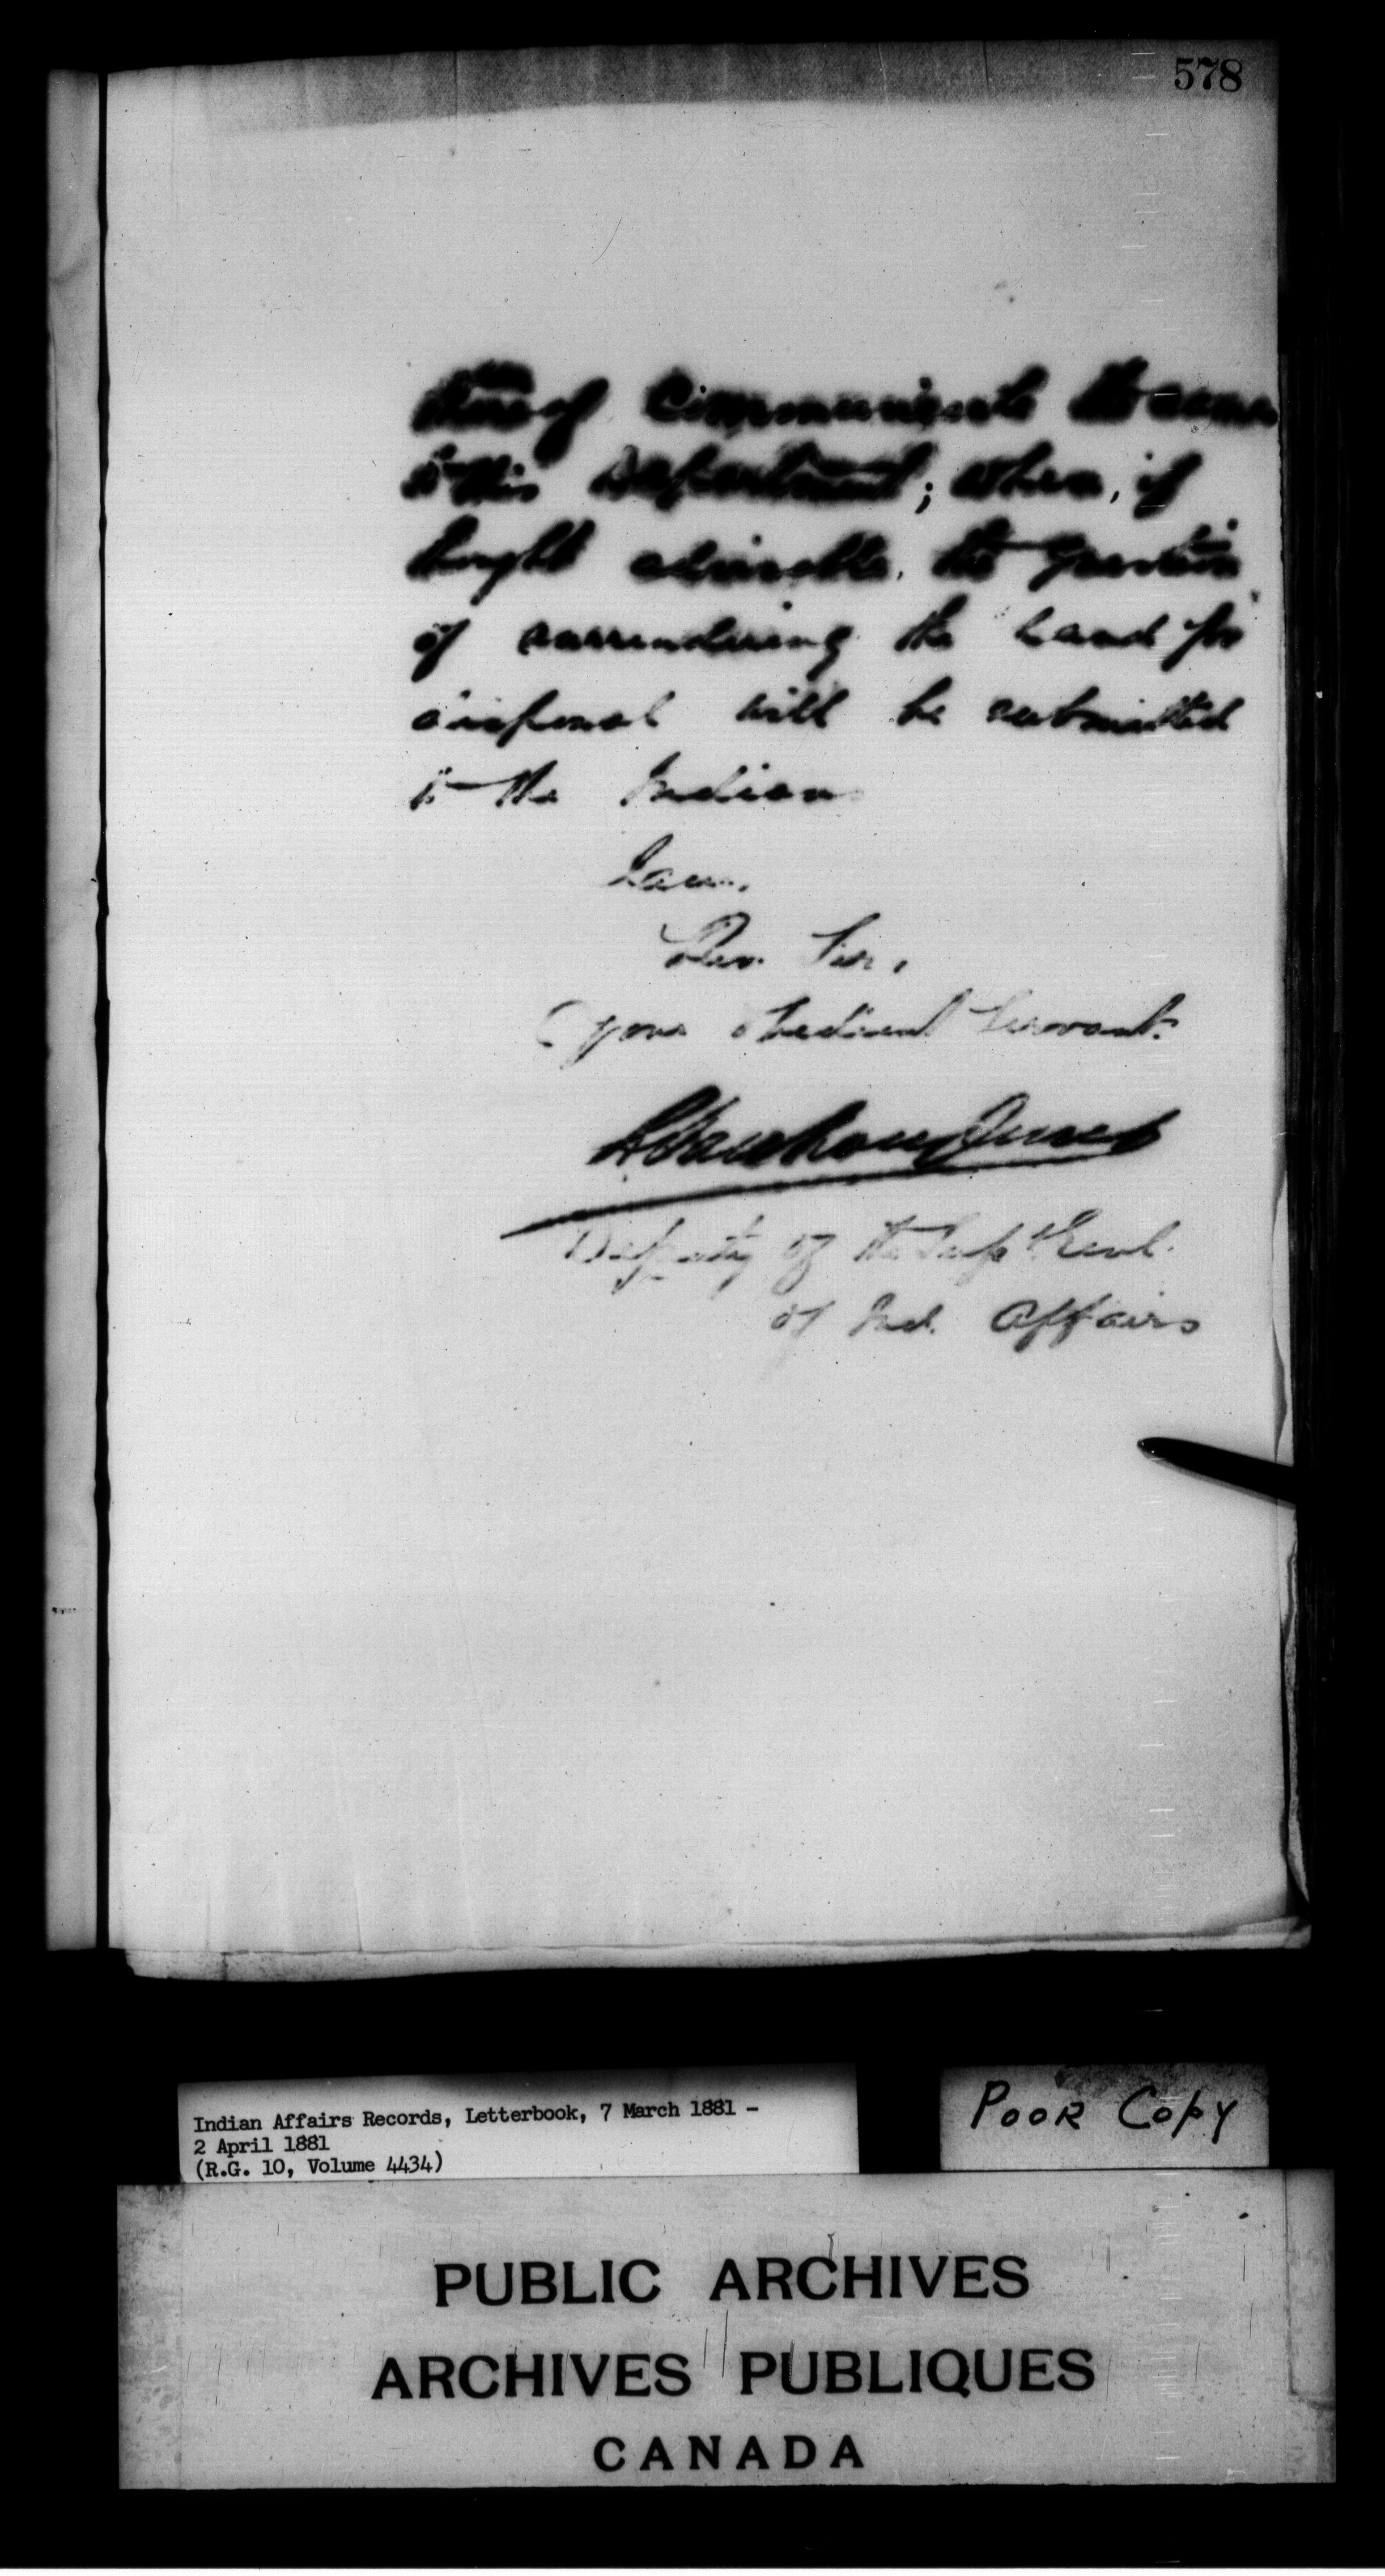 578
thereof communicate the same
to this Department; when, if
thought advisable, the question
of surrendering the land for
disposal will be submitted
to the Indians
I am,
Rev. Sir,
Your obedient Servant.
L Vankoughnet
Deputy of the Supt Genl.
of Ind. Affairs
Indian Affairs Records, Letterbook, 7 March 1881 -
2 April 1881
(R.G. 10, Volume 4434)
POOR COPY
PUBLIC ARCHIVES
ARCHIVES PUBLIQUES
CANADA